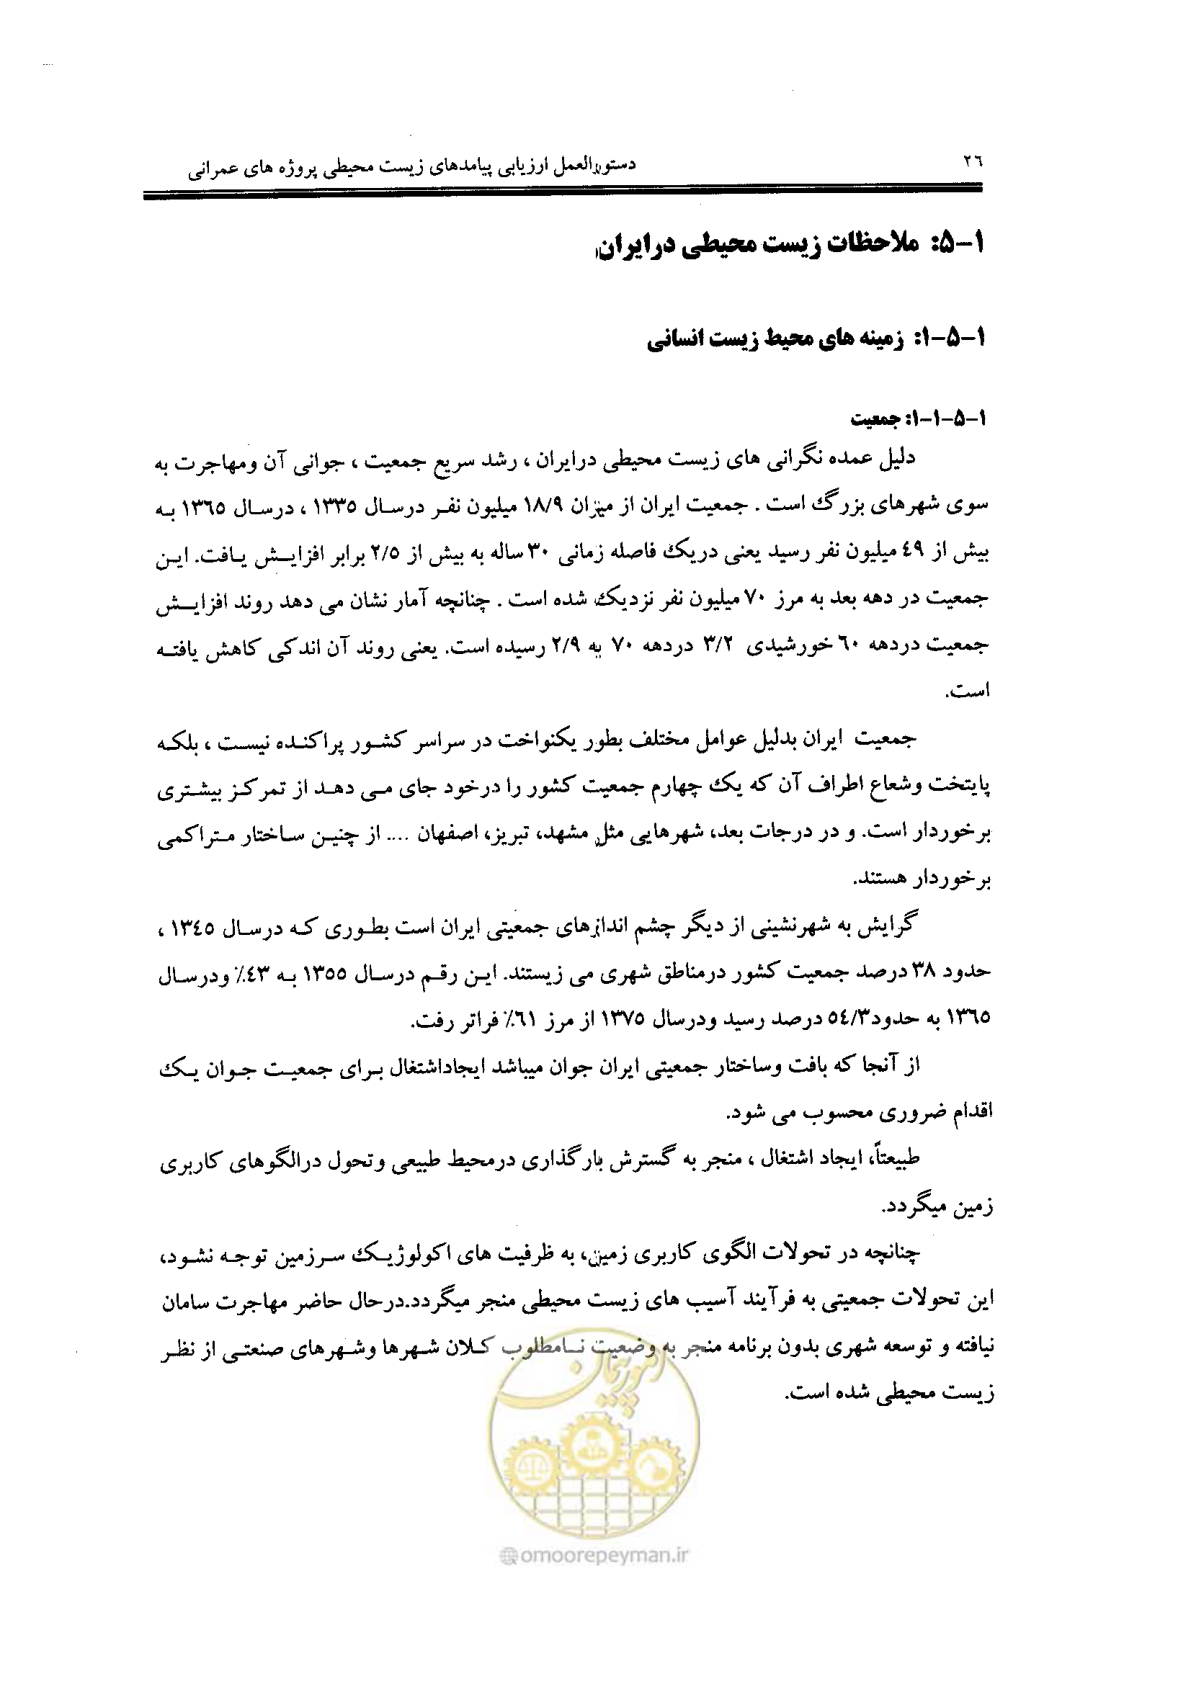 ۲۶
دستورالعمل ارزیابی پیامدهای زیست محیطی پروژه های عمرانی
۱-۵: ملاحظات زیست محیطی درایران
۱-۵-۱: زمینه های محیط زیست انسانی
۱-۵-۱-۱: جمعیت
دلیل عمده نگرانی های زیست محیطی درایران ، رشد سریع جمعیت ، جوانی آن ومهاجرت به
سوی شهرهای بزرگ است . جمعیت ایران از میزان ۱۸/۹ میلیون نفر درسال ۱۳۳۵ ، درسال ۱۳۶۵ به
بیش از ۴۹ میلیون نفر رسید یعنی دریک فاصله زمانی ۳۰ ساله به بیش از ۲/۵ برابر افزایش یافت. این
جمعیت در دهه بعد به مرز ۷۰ میلیون نفر نزدیک شده است . چنانچه آمار نشان می دهد روند افزایش
جمعیت دردهه ۶۰ خورشیدی ۳/۲ دردهه ۷۰ به ۲/۹ رسیده است. یعنی روند آن اندکی کاهش یافته
است.
جمعیت ایران بدلیل عوامل مختلف بطور یکنواخت در سراسر کشور پراکنده نیست ، بلکه
پایتخت وشعاع اطراف آن که یک چهارم جمعیت کشور را درخود جای می دهد از تمرکز بیشتری
برخوردار است. و در درجات بعد، شهرهایی مثل مشهد، تبریز، اصفهان .... از چنین ساختار متراکمی
برخوردار هستند.
گرایش به شهرنشینی از دیگر چشم اندازهای جمعیتی ایران است بطوری که درسال ۱۳۴۵ ،
حدود ۳۸ درصد جمعیت کشور درمناطق شهری می زیستند. این رقم درسال ۱۳۵۵ به ۴۳٪ ودرسال
۱۳۶۵ به حدود۵۴/۳ درصد رسید ودرسال ۱۳۷۵ از مرز ۶۱٪ فراتر رفت.
از آنجا که بافت وساختار جمعیتی ایران جوان میباشد ایجاداشتغال برای جمعیت جوان یک
اقدام ضروری محسوب می شود.
طبیعتاً، ایجاد اشتغال ، منجر به گسترش بارگذاری درمحیط طبیعی وتحول درالگوهای کاربری
زمین میگردد.
چنانچه در تحولات الگوی کاربری زمین، به ظرفیت های اکولوژیک سرزمین توجه نشود،
این تحولات جمعیتی به فرآیند آسیب های زیست محیطی منجر میگردد.درحال حاضر مهاجرت سامان
نیافته و توسعه شهری بدون برنامه منجر به وضعیت نامطلوب کلان شهرها وشهرهای صنعتی از نظر
زیست محیطی شده است.
امور پیمان
omoorepeyman.ir